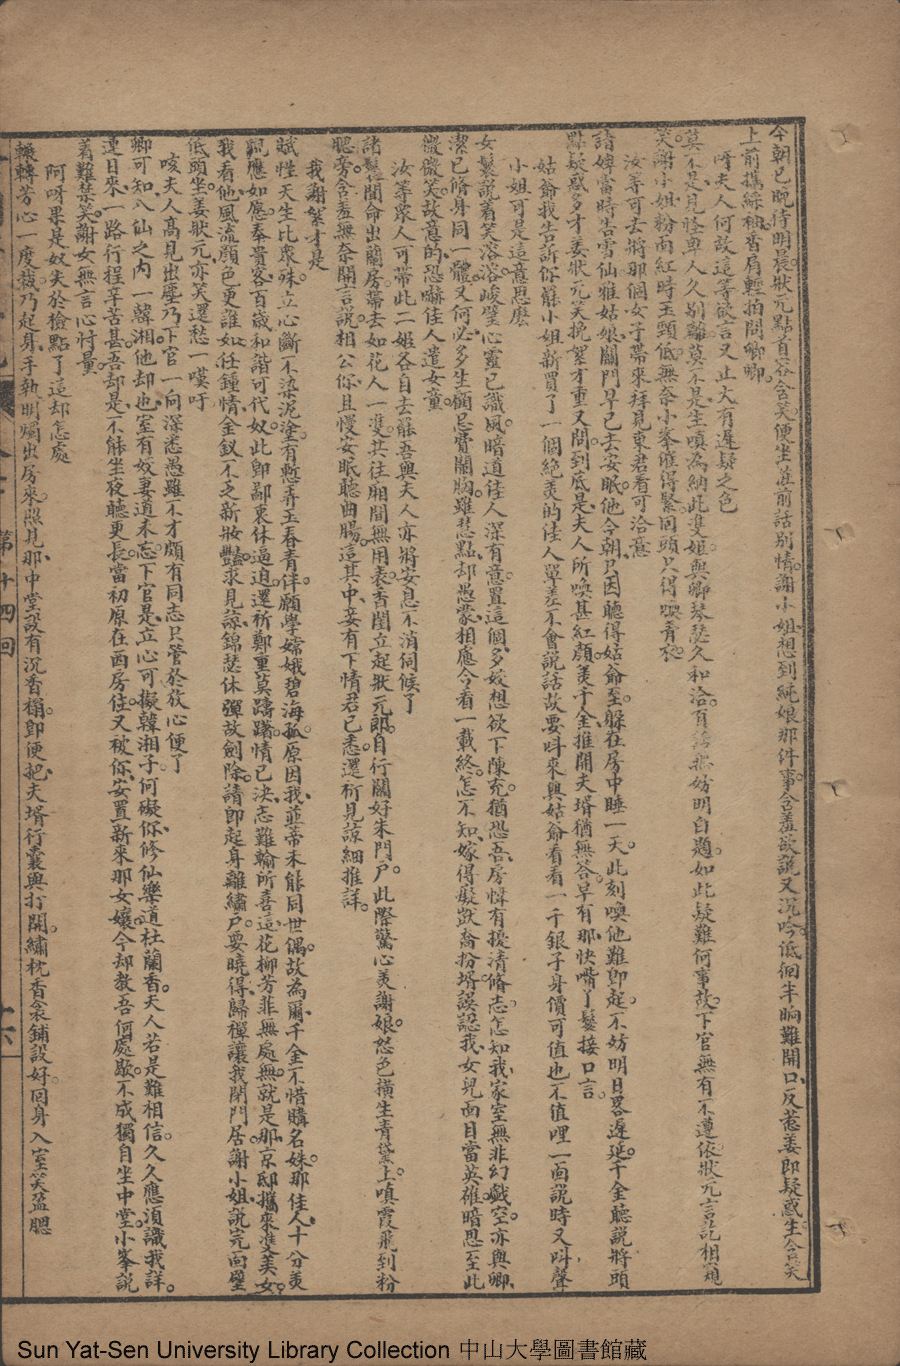 今朝已晚待明晨。狀元點首容含笑。便坐莊前話別情。謝小姐想到純娘那件事。含羞欲說又沉吟。低徊半晌難開口。反惹姜郎疑惑生。含笑
上前攜綵袖。香肩輕拍問卿卿。
呀夫人何故這等欲言又止大有遲疑之色
莫不是。見怪卑人久別離。莫不是。生嗔為納此雙姬。與卿琴瑟久和洽。有話無妨明白題。如此疑難何事故。下官無有不遵依。狀元言訖相窺
笑。謝小姐粉面紅時玉頸低。無奈小峯催得緊。回頭只得喚青衣。
汝等可去將那個女子帶來拜見東君看可洽意
諸婢當時告雪仙。雅姑娘。關門早已去安眠。他今朝。只因聽得姑爺至。躲在房中睡一天。此刻喚他難即起。不妨明日畧遲延。千金聽說將頭
點。疑惑多才姜狀元。笑挽絮才重又問。到底是。夫人所喚甚紅顏。羨千金。推開夫壻猶無答。早有那。快嘴丫鬟接口言。
姑爺我告訴你罷小姐新買了一個絕美的佳人單差不會說話故要呌來與姑爺看看一千銀子身價可值也不值哩一面說時又呌聲
小姐可是這意思麼
女鬟說着笑溶溶。峻璧心靈已識風。暗道佳人深有意。置這個。多姣想欲下陳充。猶恐吾。房幃有擾清修志。怎知我。家室無非幻戲空。亦與卿。
潔已修身同一體。又何必。多生顧忌費關胸。雖慧點。却愚蒙。相應今看一載終。怎不知。嫁得癡獃喬扮壻。誤認我。女兒面目當英雄。暗思至此
微微笑。故意的。恐嚇佳人遣女童。
汝等衆人可帶此二姬各自去罷吾與夫人亦將安息不消伺候了
諸鬟聞命出蘭房。帶去如花人一雙。其往廂間無用表。香閨立起狀元郎。自行關好朱門戶。此際驚心羨謝娘。怒色橫生青黛上。嗔霞飛到粉
腮旁。含羞無奈開言說。相公你。且慢安眠聽曲腸。這其中。妾有下情君已悉。還祈見諒細推詳。
我謝絮才是
賦性天生比衆殊。立心斷不染泥塗。有慙弄玉春青伴。願學嫦娥碧海孤。原因我。並蒂未能同世偶。故為爾。千金不惜購名姝。那佳人。十分美
貌應如應。奉貴客。百歲和諧可代奴。此卽鄙衷休逼迫。還祈鄭重莫躊躇。情已決。志難輸。所喜這。花柳芳菲無處無。就是那。京邸攜來雙美女。
我看他。風流顏色更誰如。任鍾情。金釵不乏新妝豔。求見諒。錦瑟休彈故劍除。請卽起身離繡戶。要曉得。歸禪讓我閉門居。謝小姐。說完面壁
低頭坐。姜狀元。亦笑還愁一嘆吁
咳夫人高見出塵乃下官一向深悉愚雖不才頗有同志只管於放心便了
卿可知。八仙之內一韓湘。他却也。室有姣妻道未忘。下官是。立心可擬韓湘子。何礙你。修仙樂道杜蘭香。夫人若是難相信。久久應須識我詳。
連日來。一路行程辛苦甚。吾却是。不能坐夜聽更長。當初原在西房住。又被你。安置新來那女孃。今却教吾何處歇。不成獨自坐中堂。小峯說
着難禁笑。謝女無言心忖量。
阿呀果是奴失於檢點了這却怎處
輾轉芳心一度裁。乃起身。手執明燭出房來。照見那。中堂設有沉香榻。卽便把。夫壻行囊與打開。繡枕香衾鋪設好。回身入室笑盈腮
第十四回